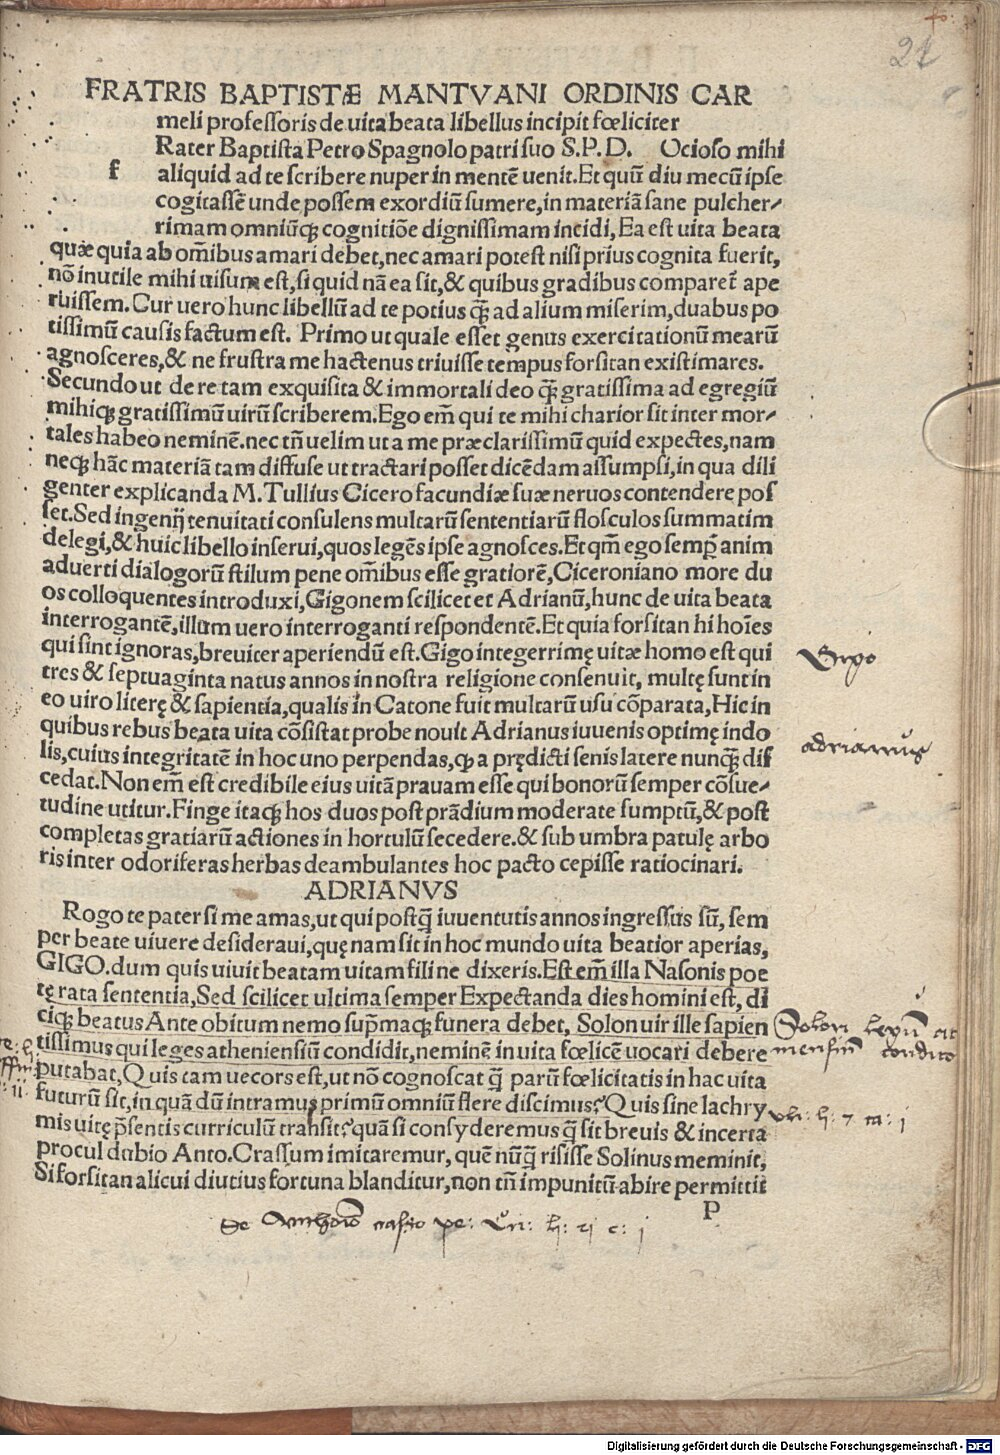 21
FRATRIS BAPTISTÆ MANTVANI ORDINIS CAR
meli professoris de uita beata libellus incipit fœliciter
f Rater Baptista Petro Spagnolo patri suo S.P.D. Ocioso mihi
aliquid ad te scribere nuper in mentē uenit.Et quū diu mecū ipse
cogitassē unde possem exordiū sumere,in materiā sane pulcher-
rimam omniūqꝫ cognitiōe dignissimam incidi,Ea est uita beata
quæ quia ab om̄ibus amari debet,nec amari potest nisi prius cognita fuerit,
nō inutile mihi uisum est,si quid nā ea sit,& quibus gradibus comparet̄ ape
ruissem.Cur uero hunc libellū ad te potius qꝫ̄ ad alium miserim,duabus po
tissimū causis factum est. Primo ut quale esset genus exercitationū mearū
agnosceres,& ne frustra me hactenus triuisse tempus forsitan existimares.
Secundo ut de re tam exquisita & immortali deo qꝫ̄ gratissima ad egregiū
mihiqꝫ gratissimū uirū scriberem.Ego em̄ qui te mihi charior sit inter mor-
tales habeo neminē.nec tn̄ uelim ut a me præclarissimū quid expectes,nam
neqꝫ hāc materiā tam diffuse ut tractari posset dicēdam assumpsi,in qua dili
genter explicanda M.Tullius Cicero facundiæ suæ neruos contendere pos
set.Sed ingenij tenuitati consulens multarū sententiarū flosculos summatim
delegi,& huic libello inserui,quos legēs ipse agnosces.Et qm̄ ego semp̄ anim
aduerti dialogorū stilum pene om̄ibus esse gratiorē,Ciceroniano more du
os colloquentes introduxi,Gigonem scilicet et Adrianū,hunc de uita beata
interrogantē,illum uero interroganti respondentē.Et quia forsitan hi hoīes
qui sint ignoras,breuiter aperiendū est.Gigo integerrimę uitæ homo est qui
tres & septuaginta natus annos in nostra religione consenuit, multę sunt in
eo uiro literę & sapientia,qualis in Catone fuit multarū usu cōparata,Hic in
quibus rebus beata uita cōsistat probe nouit Adrianus iuuenis optimę indo
lis,cuius integritatē in hoc uno perpendas,ꝙ a prędicti senis latere nunqꝫ̄ dis
cedat.Non em̄ est credibile eius uitā prauam esse qui bonorū semper cōsue-
tudine utitur.Finge itaqꝫ hos duos post prādium moderate sumptū,& post
completas gratiarū actiones in hortulū secedere.& sub umbra patulę arbo
ris inter odoriferas herbas deambulantes hoc pacto cepisse ratiocinari.
ADRIANVS
Rogo te pater si me amas,ut qui postq̄ iuuentutis annos ingressus sū, sem
per beate uiuere desideraui,quę nam sit in hoc mundo uita beatior aperias,
GIGO.dum quis uiuit beatam uitam fili ne dixeris.Est em̄ illa Nasonis poe
tę rata sententia,Sed scilicet ultima semper Expectanda dies homini est, di
ciqꝫ beatus Ante obitum nemo sup̄maqꝫ funera debet, Solon uir ille sapien
tissimus qui leges atheniensiū condidit,neminē in uita fœlicē uocari debere
putabat,Quis tam uecors est,ut nō cognoscat q̄ parū fœlicitatis in hac uita
futurū sit,in quā dū intramus primū omniū flere discimus?Quis sine lachry
mis uitę p̄sentis curriculū transit?quā si consyderemus q̄ sit breuis & incerta
procul dubio Anto.Crassum imitaremur, quē nūq̄ risisse Solinus meminit,
Si forsitan alicui diutius fortuna blanditur,non tn̄ impunitū abire permittit
P
Gigo
adrianus
Solon
condito